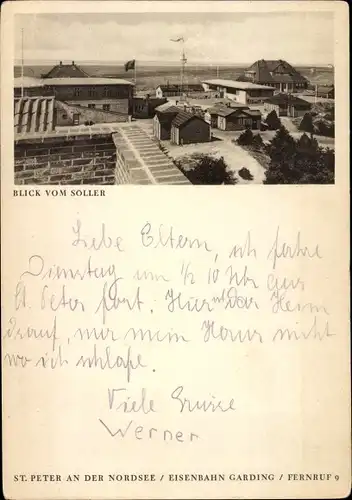 BLICK VOM SÖLLER
Liebe Eltern, ich fahre
Dienstag um 1/2 10 Uhr aus
St. Peter fort. Hier ist das Heim
drauf, nur mein Haus nicht
wo ich schlafe.
Viele Grüsse
Werner
ST. PETER AN DER NORDSEE / EISENBAHN GARDING / FERNRUF 9